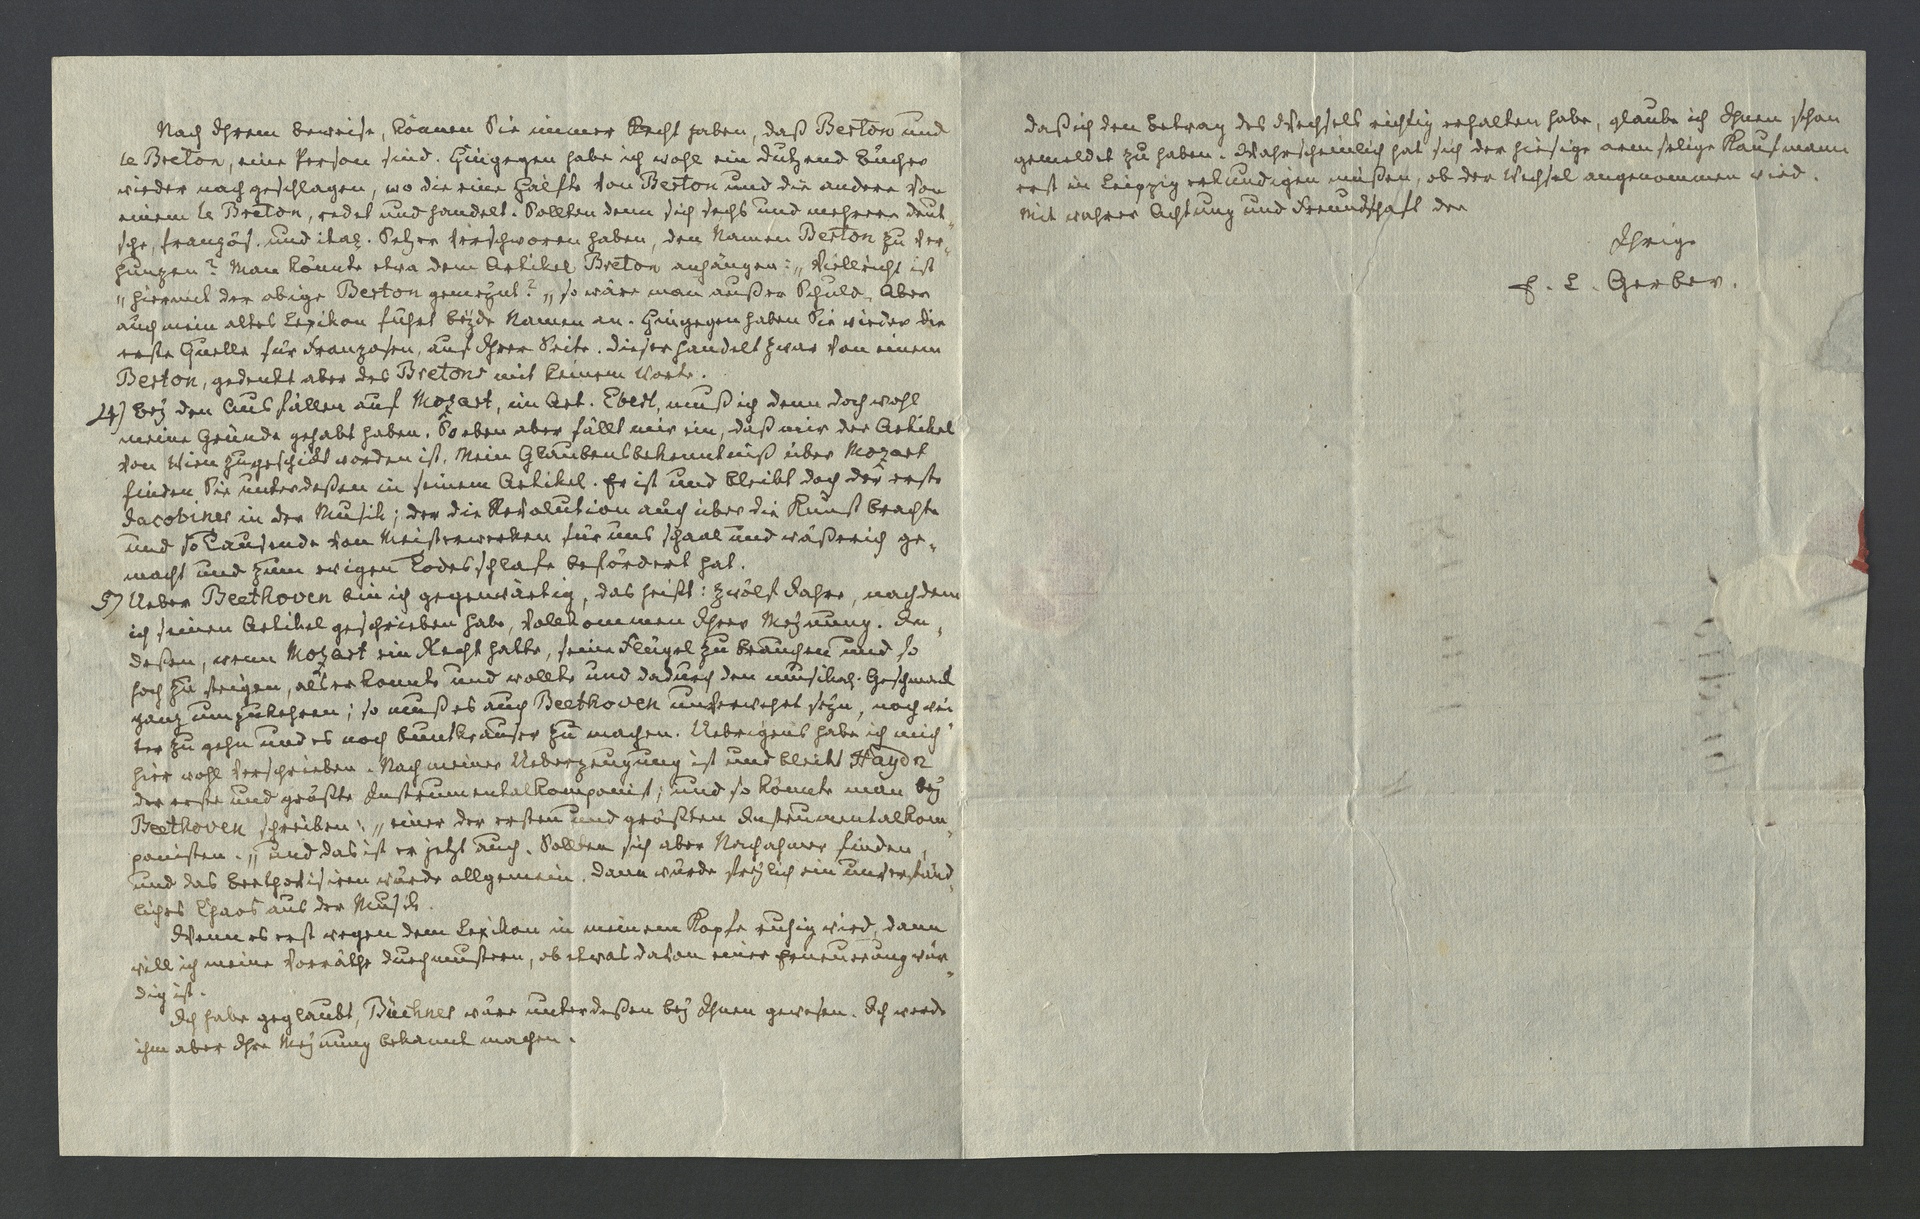 Nach Ihrem Beweise, können Sie immer Recht haben, daß Berton und
le Breton, eine Person sind. Hingegen habe ich wohl ein Dutzend Bücher
wieder nachgeschlagen, wo die eine Hälfte von Berton und die andere von
einem le Breton, redet und handelt. Sollten denn sich sechs und mehrere deut-
sche, französ. und ital. Setzer verschworen haben, den Namen Berton zu ver-
hunzen? Man könnte etwa dem Artikel Breton anhängen: „Vielleicht ist
„hiermit der obige Berton gemeynt?„ so wäre man außer Schuld. Aber
auch mein altes Lexikon führt beyde Namen an. Hingegen haben Sie wieder die
erste Quelle für Franzosen, auf Ihrer Seite. Dieser handelt zwar von einem
Berton, gedenkt aber des Bretons mit keinem Worte.
4) Bey den Ausfällen auf Mozart, im Art. Eberl, muß ich denn doch wohl
meine Gründe gehabt haben. So eben aber fällt mir ein, daß mir der Artikel
von Wien zugeschickt worden ist. Mein Glaubensbekenntniß über Mozart
finden Sie unterdeßen in seinem Artikel. Er ist und bleibt doch der erste
Jacobiner in der Musik; der die Revolution auch über die Kunst brachte
und so Tausende von Meisterwerken für uns schaal und wäßerich ge-
macht und zum ewigen Todesschlafe befördert hat.
5) Ueber Beethoven bin ich gegenwärtig, das heißt: zwölf Jahre, nachdem
ich seinen Artikel geschrieben habe, vollkommen Ihrer Meynung. In-
deßen, wenn Mozart ein Recht hatte, seine Flügel zu brauchen und so
hoch zu steigen, als er konnte und wollte und dadurch den musikal. Geschmack
ganz umzukehren; so muß es auch Beethoven unverwehrt seyn, noch wei-
ter zu gehn und es noch buntkrauser zu machen. Uebrigens habe ich mich
hier wohl verschrieben. Nach meiner Ueberzeugung ist und bleibt Haydn
der erste und größte Instrumentalkomponist; und so könnte man bey
Beethoven schreiben: „einer der ersten und größten Instrumentalkom-
ponisten.„ und das ist er jetzt auch. Sollten sich aber Nachahmer finden,
und das Beethovisiren würde allgemein. Dann würde freylich ein unverständ-
liches Chaos aus der Musik.
Wenn es erst wegen dem Lexikon in meinem Kopfe ruhig wird, dann
will ich meine Vorräthe durchmustern, ob etwas davon einer Erneuerung wür-
dig ist.
Ich habe geglaubt, Büchner wäre unterdeßen bey Ihnen gewesen. Ich werde
ihm aber Ihre Meynung bekannt machen.
Daß ich den Betrag des Wechsels richtig erhalten habe, glaube ich Ihnen schon
gemeldet zu haben. Wahrscheinlich hat sich der hiesige armselige Kaufmann
erst in Leipzig erkundigen müßen, ob der Wechsel angenommen wird.
Mit wahrer Achtung und Freundschaft der
Ihrige
E. L. Gerber.